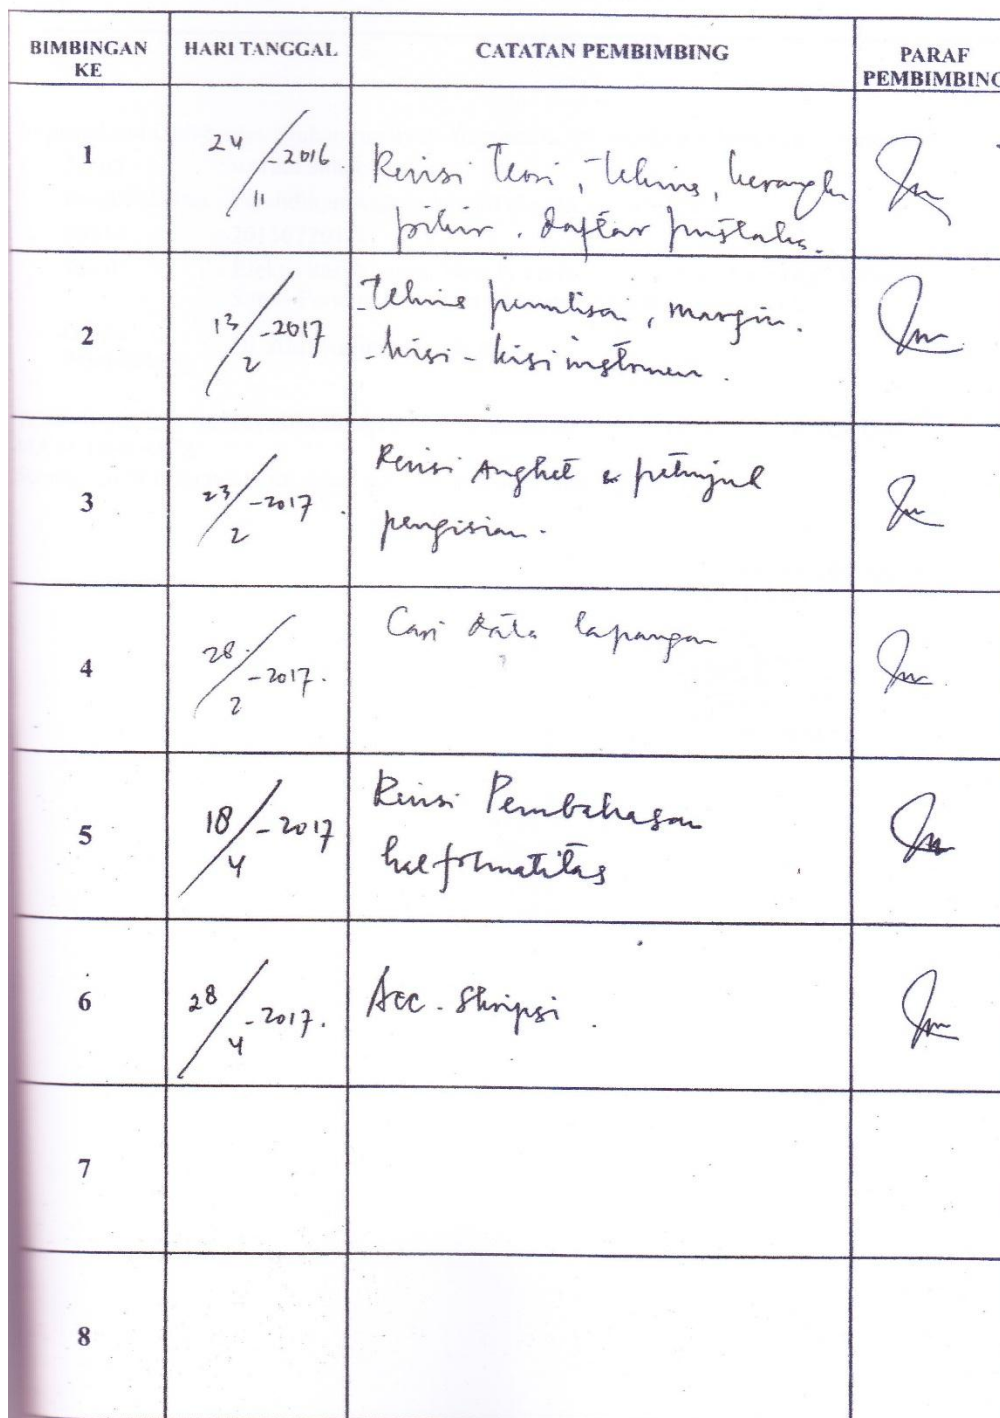 BIMBINGAN KE
HARI TANGGAL
CATATAN PEMBIMBING
PARAF PEMBIMBING
1
24/11-2016.
Revisi Teori, Tekins, kerangka
pikir. daftar pustaka.
2
13/2-2017
- Tekins penulisan, margin.
- kisi-kisi instrumen.
3
23/2-2017.
Revisi Angket & petunjuk
pengisian.
4
28/2-2017.
Cari data lapangan
5
18/4-2017
Revisi Pembahasan
6
28/4-2017.
Acc. Skripsi.
7
8